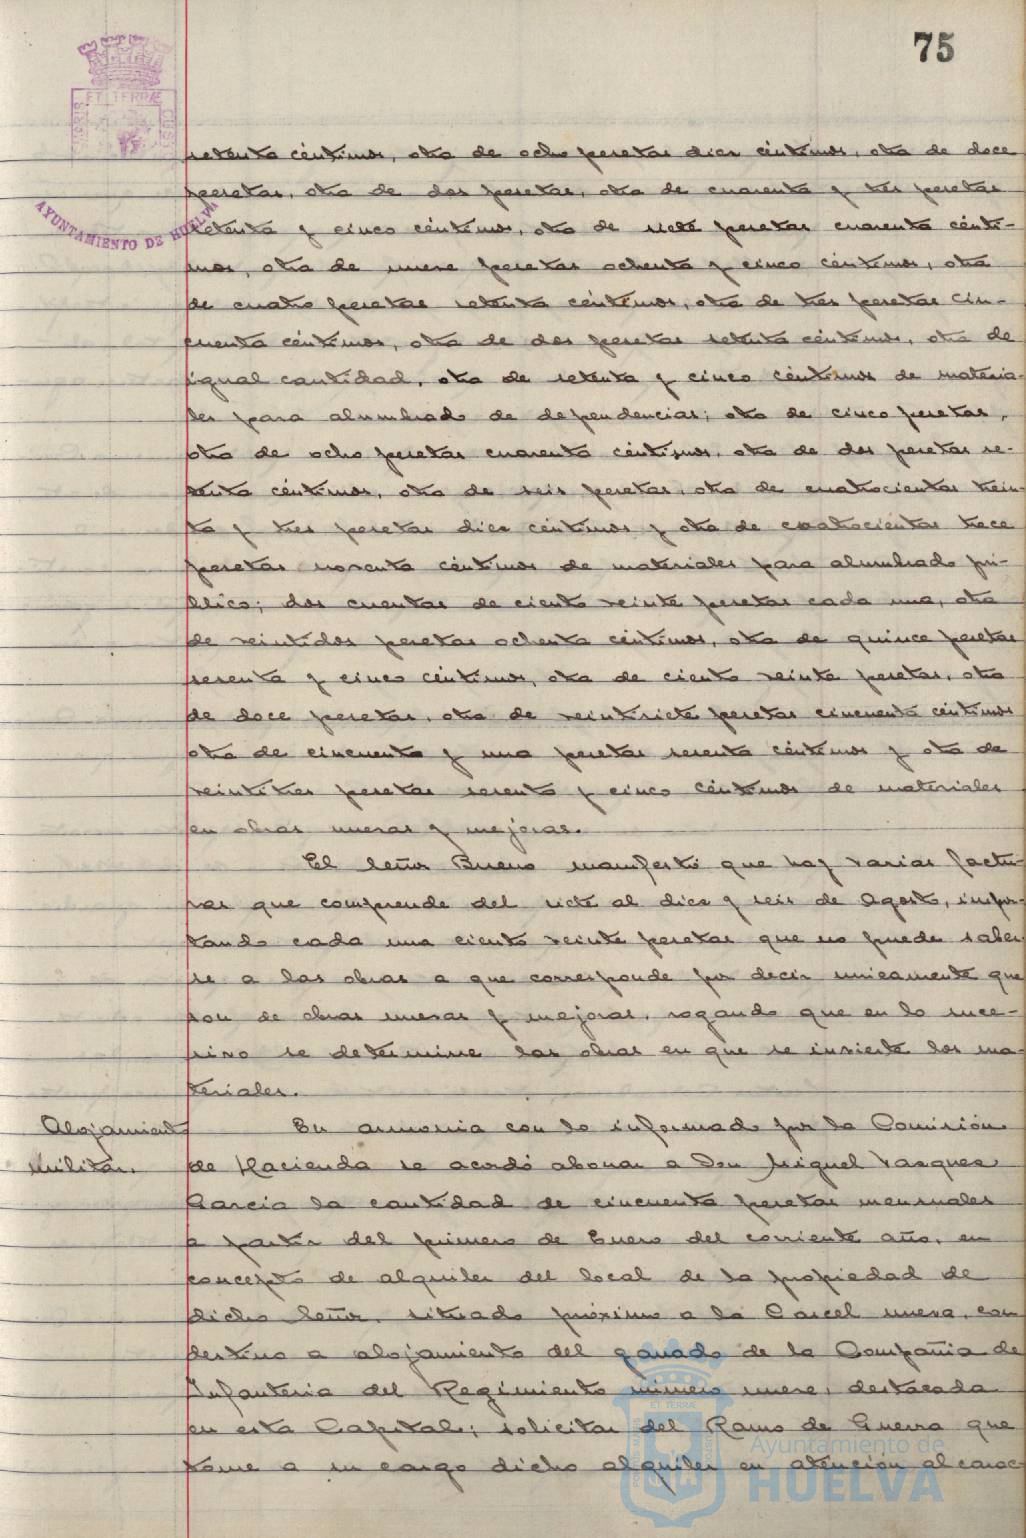 75
ET TERRÆ
AYUNTAMIENTO DE HUELVA
setenta céntimos, otra de ocho pesetas diez céntimos, otra de doce
pesetas, otra de dos pesetas, otra de cuarenta y tres pesetas
setenta y cinco céntimos, otra de siete pesetas cuarenta cénti-
mos, otra de nueve pesetas ochenta y cinco céntimos, otra
de cuatro pesetas setenta céntimos, otra de tres pesetas cin-
cuenta céntimos, otra de dos pesetas setenta céntimos, otra de
igual cantidad, otra de setenta y cinco céntimos de materia-
les para alumbrado de dependencias; otra de cinco pesetas,
otra de ocho pesetas cuarenta céntimos, otra de dos pesetas se-
tenta céntimos, otra de seis pesetas, otra de cuatrocientas trein-
ta y tres pesetas diez céntimos y otra de cuatrocientas trece
pesetas noventa céntimos de materiales para alumbrado pú-
blico; dos cuentas de ciento veinte pesetas cada una, otra
de veintidos pesetas ochenta céntimos, otra de quince pesetas
sesenta y cinco céntimos, otra de ciento veinte pesetas, otra
de doce pesetas, otra de veintisiete pesetas cincuenta céntimos
otra de cincuenta y una pesetas sesenta céntimos y otra de
veintitres pesetas sesenta y cinco céntimos de materiales
en obras nuevas y mejoras.
El Señor Bueno manifestó que hay varias factu-
ras que comprende del siete al diez y seis de Agosto, impor-
tando cada una ciento veinte pesetas que no puede saber-
se a las obras a que corresponde por decir unicamente que
son de obras nuevas y mejoras, rogando que en lo suce-
sivo se determine las obras en que se invierte los ma-
teriales.
Alojamiento
militar.
En armonia con lo informado por la Comisión
de Hacienda se acordó abonar a Don Miguel Vazquez
Garcia la cantidad de cincuenta pesetas mensuales
a partir del primero de Enero del corriente año, en
concepto de alquiler del local de la propiedad de
dicho Señor, situado próximo a la Carcel nueva, con
destino a alojamiento del ganado de la Compañia de
Infanteria del Regimiento número nueve, destacada
en esta Capital; solicitar del Ramo de Guerra que
tome a su cargo dicho alquiler en atención al carac-
ET TERRÆ
Ayuntamiento de
HUELVA